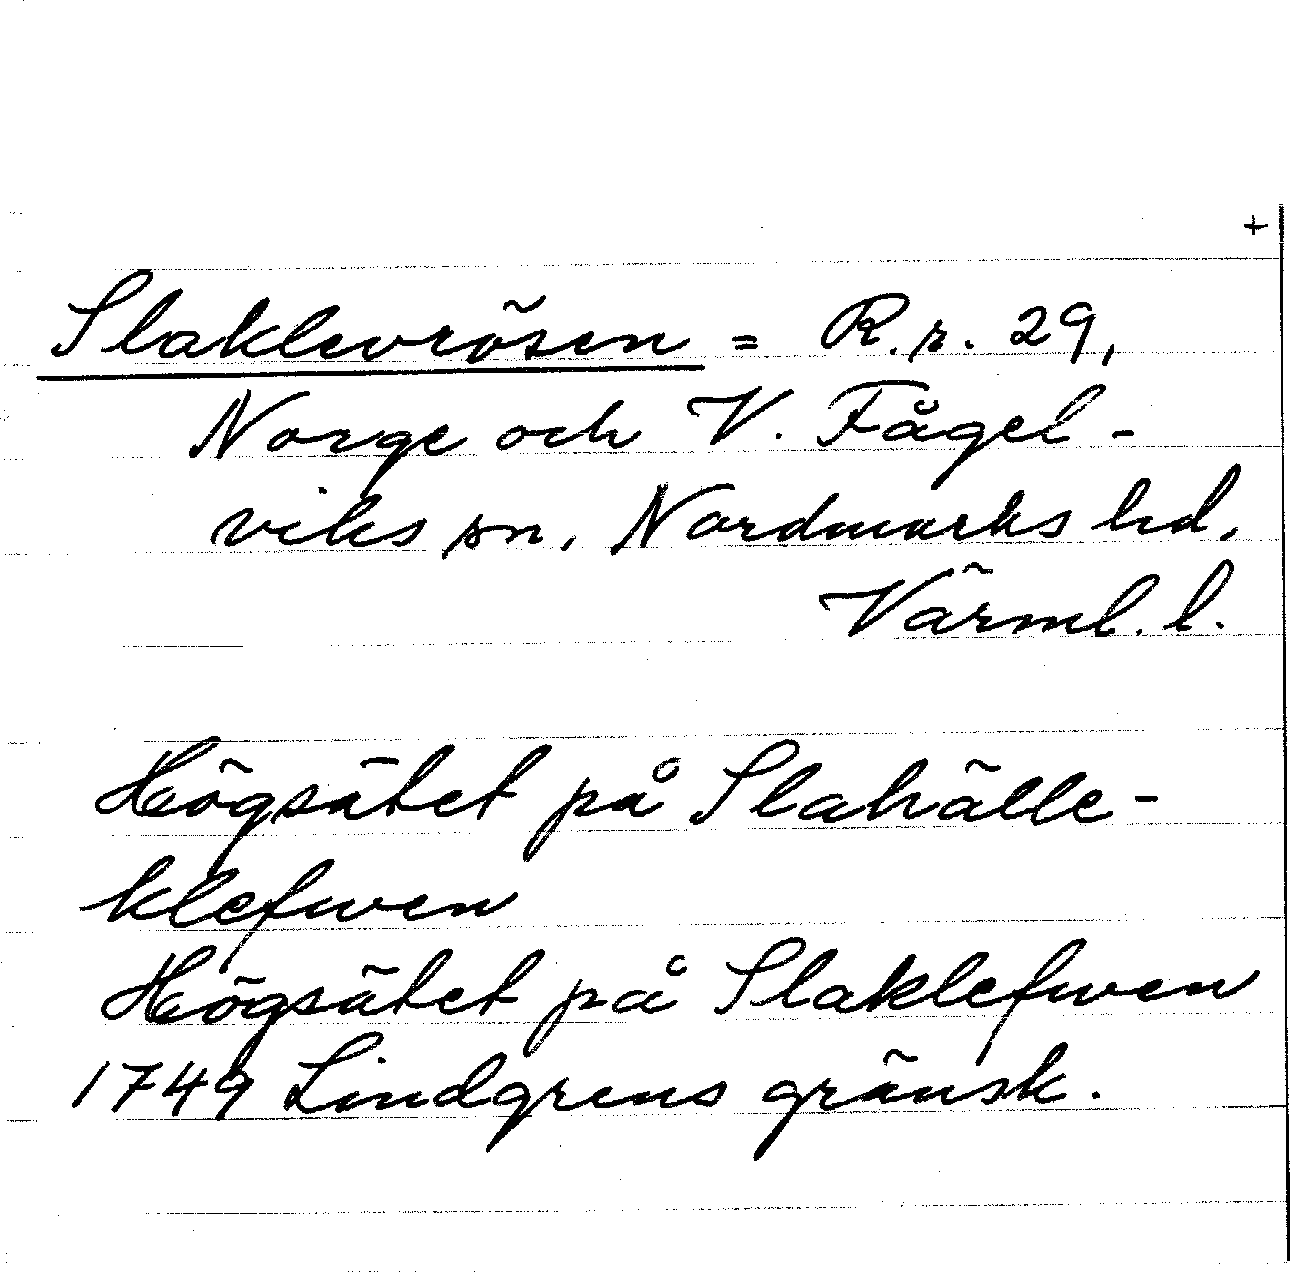 +
Slaklevrösen = R.r. 29,
Norge och V. Fågel-
viks sn, Nordmarks hd,
Värml. l.
Högsätet på Slahälle-
klefwen
Högsätet på Slaklefwen
1749 Lindgrens gränsk.